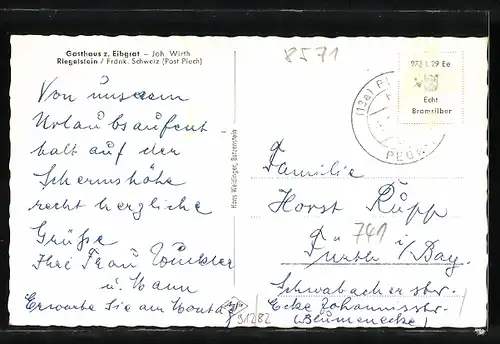 Gasthaus z. Eibgrat – Joh. Wirth
Riegelstein / Fränk. Schweiz (Post Plech)
Von unserem
Urlaubsaufent
halt auf der
Schermshöhe
recht herzliche
Grüße
Ihre Frau Winkler
u. Mann
Erwarte Sie am Montag
Hans Weidinger, Betzenstein
8571
973 L 29 Ee
Echt
Bromsilber
(13a) P
PEG
Familie
Horst Rupp
741
Fürth i/Bay.
Schwabacherstr.
Ecke Johannisstr.
(Blumenecke)
91282